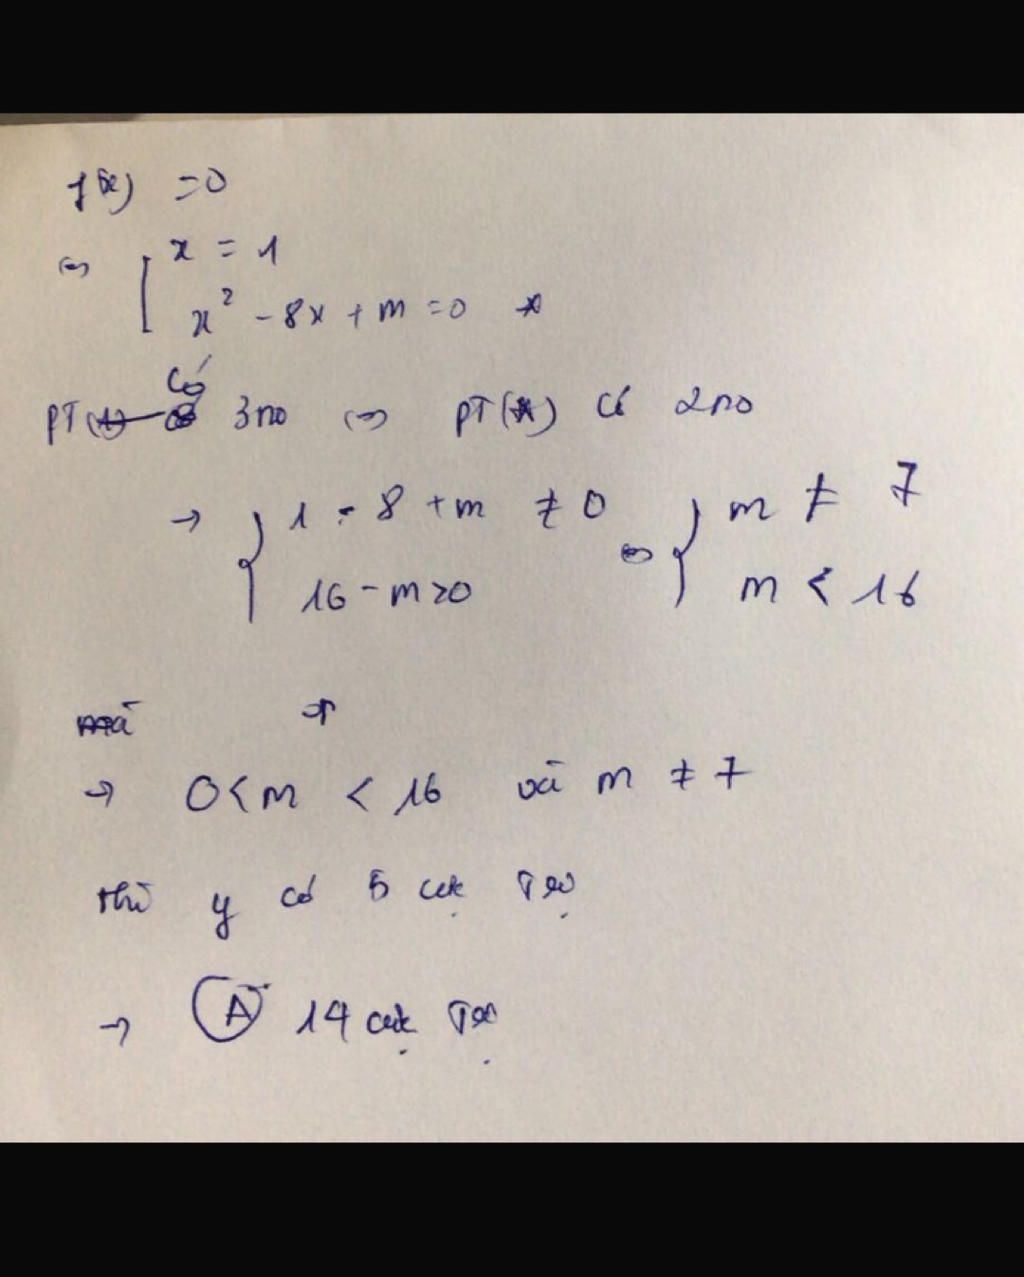 f(x) = 0
⇔ [ x = 1
x² - 8x + m = 0 *
có
PT 3 no ⇔ PT(*) có 2 no
→ { 1 - 8 + m ≠ 0 ⇔ { m ≠ 7
16 - m > 0 m < 16
mà
→ 0 < m < 16 và m ≠ 7
thì y có 5 cực trị
→ A 14 cực trị